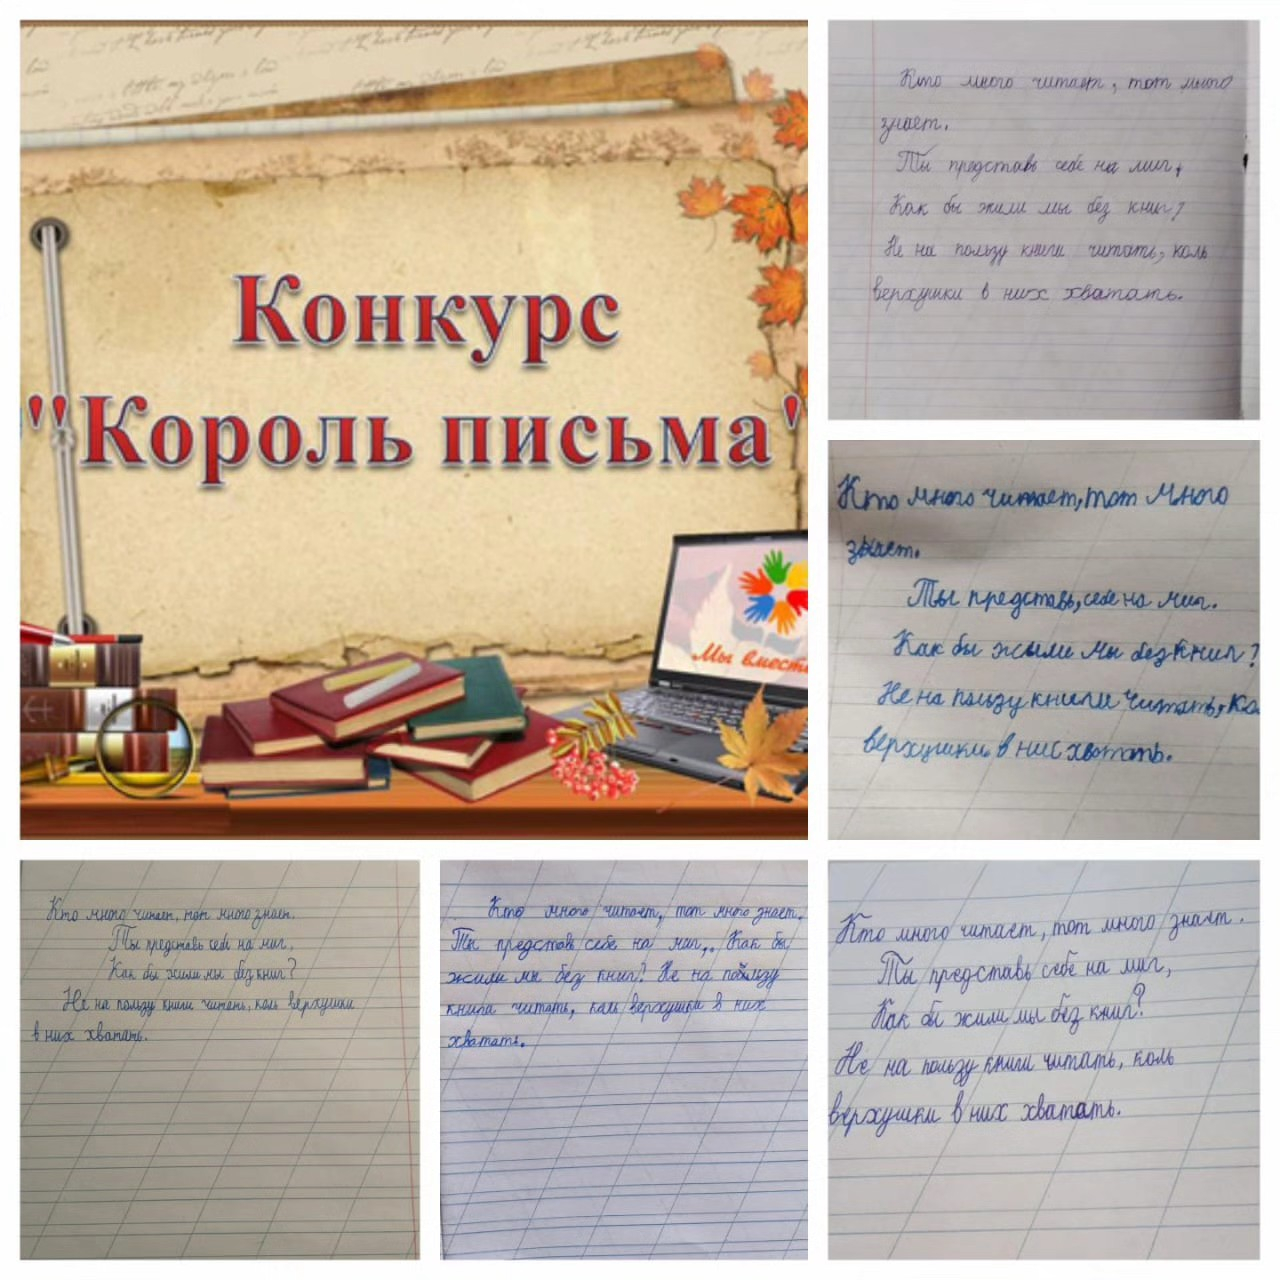 Конкурс
"Король письма"
Мы вместе
Кто много читает, тот много
знает.
Ты представь себе на миг,
Как бы жили мы без книг?
Не на пользу книги читать, коль
верхушки в них хватать.
Кто много читает, тот много
знает.
Ты представь, себе на миг.
Как бы жыли мы без книг?
Не на пользу книги читать, ко
верхушки в них хватать.
Кто много читает, тот много знает.
Ты представь себе на миг,
Как бы жили мы без книг?
Не на пользу книги читать, коль верхушки
в них хватать.
Кто много читает, тот много знает.
Ты представь себе на миг,. Как бы
жили мы без книг? Не на пользу
книга читать, коль верхушки в них
хватать.
Кто много читает, тот много знает.
Ты представь себе на миг,
Как бы жили мы без книг?
Не на пользу книги читать, коль
верхушки в них хватать.